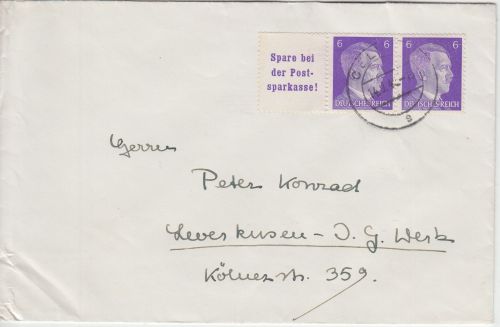 Spare bei
der Post-
sparkasse!
6 6 6 6
DEUTSCHES REICH DEUTSCHES REICH
g
Herrn
Peter Konrad
Leverkusen - I. G. Werk
Kölnerstr. 359.